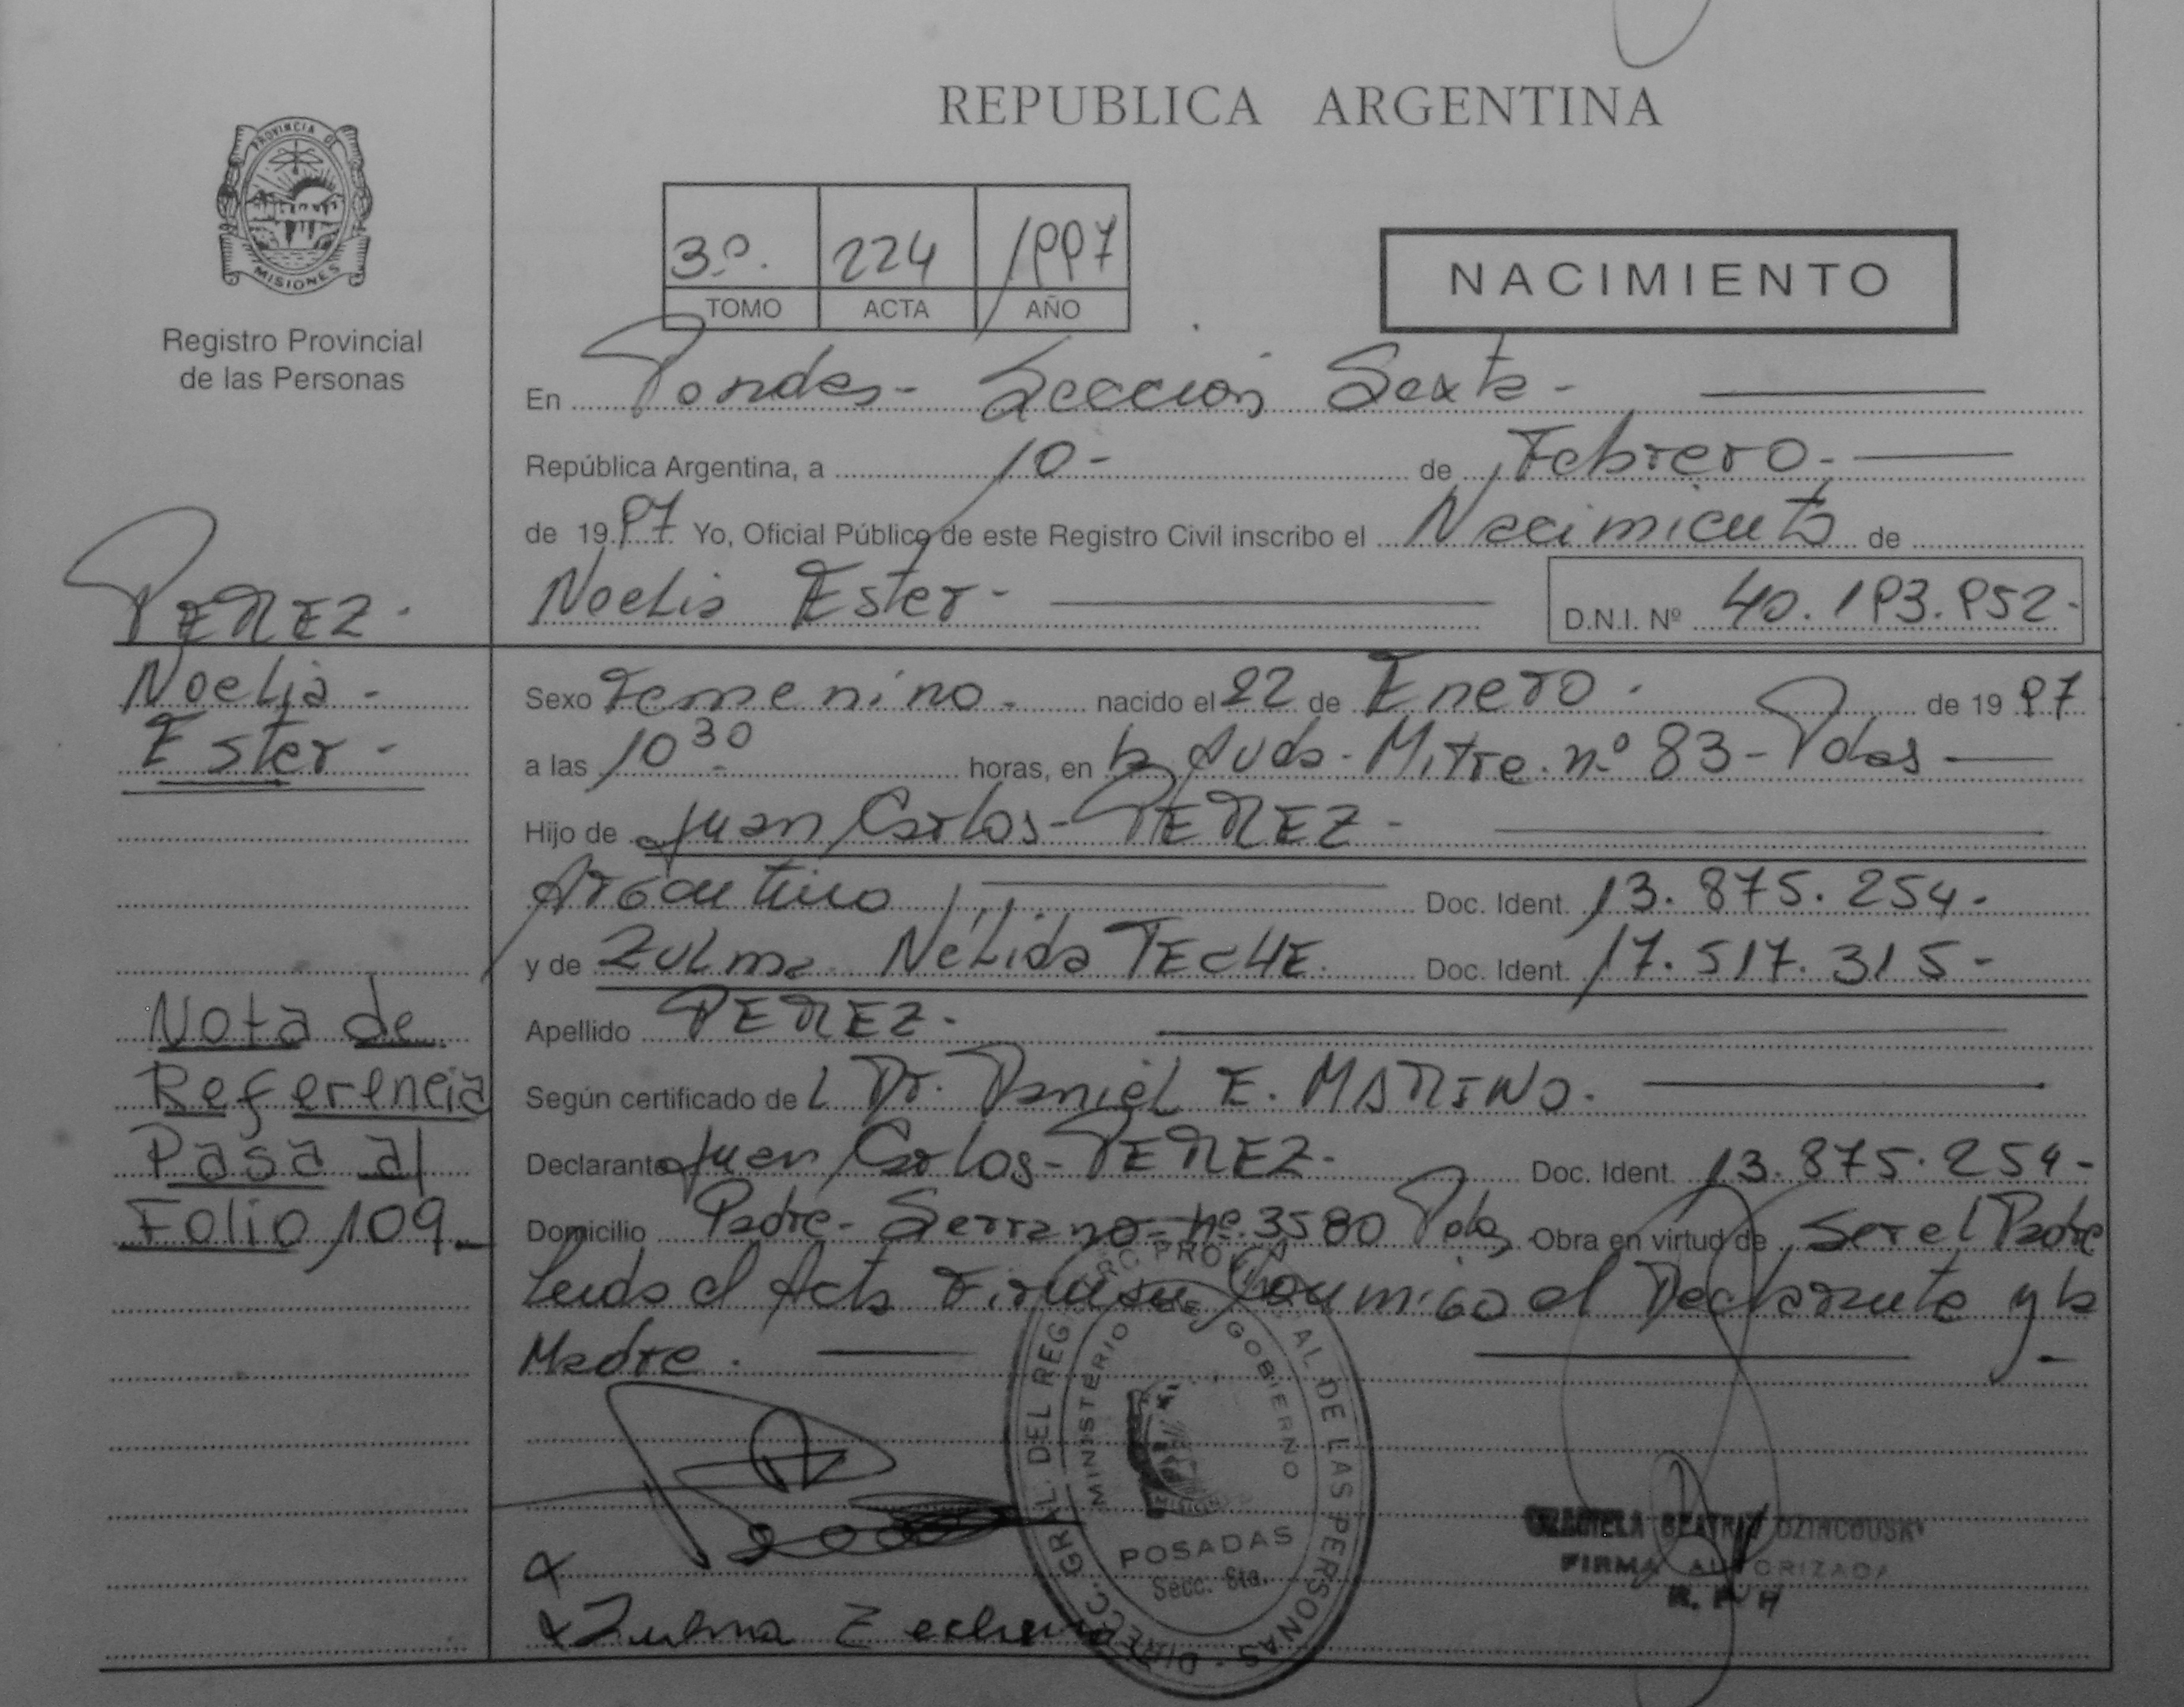 REPUBLICA ARGENTINA
PROVINCIA DE
MISIONES
Registro Provincial
de las Personas
3º. 224 1997
TOMO ACTA AÑO
NACIMIENTO
En Posadas - Sección Sexta -
República Argentina, a 10 - de Febrero. -
de 1997 Yo, Oficial Público de este Registro Civil inscribo el Nacimiento de
Noelia Ester - D.N.I. Nº 40.193.952-
PEREZ.
Noelia -
Ester -
Sexo Femenino. nacido el 22 de Enero. de 1997
a las 10 30 horas, en la Avda. Mitre. nº 83 - Pdas -
Hijo de Juan Carlos - PEREZ -
Argentino Doc. Ident. 13.875.254-
y de Zulma Nélida TECHE. Doc. Ident. 17.517.315-
Apellido PEREZ.
Según certificado del Dr. Daniel E. MARINO.
Declarante Juan Carlos - PEREZ. Doc. Ident. 13.875.254-
Domicilio Padre - Serrano - nº. 3580 Pdas Obra en virtud de Ser el Padre
Leida el Acta Firman Conmigo el Declarante y la
Madre. -
Nota de
Referencia
Pasa al
Folio 109.-
DIRECC. GRAL. DEL REG DE LAS PERSONAS
MINISTERIO DE GOBIERNO
POSADAS
Secc. 6ta.
Zulma
BEATRIZ
FIRMA AUTORIZADA